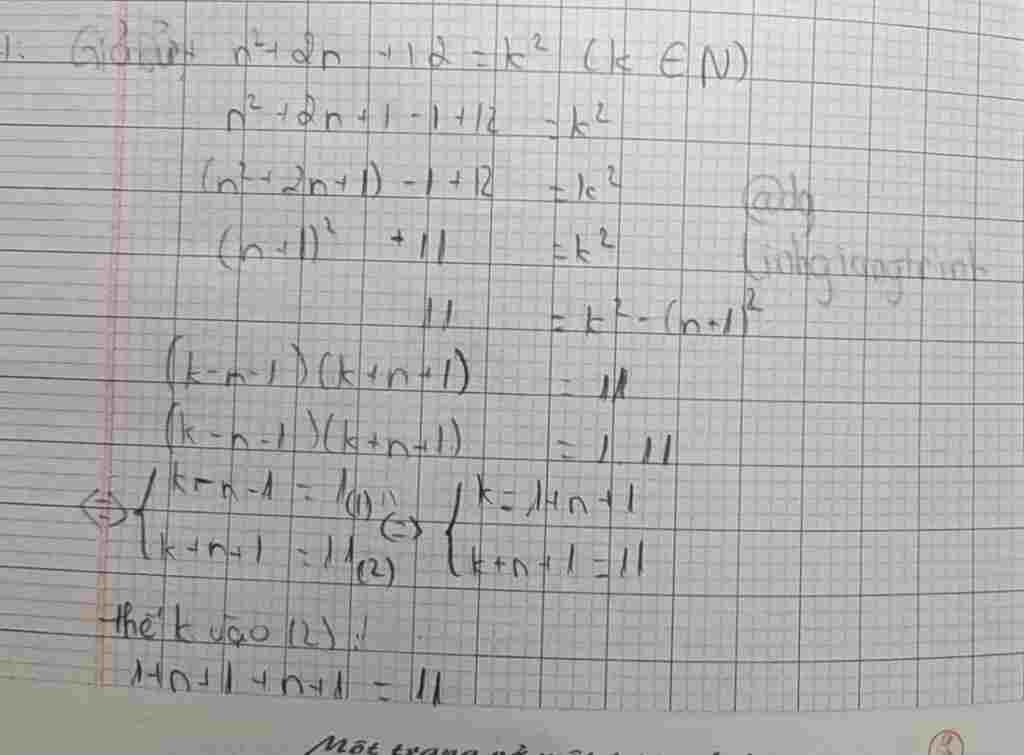 1: Giả sử n²+2n +12 = k² (k ∈ N)
n²+2n+1-1+12 = k²
(n²+2n+1)-1+12 = k²
(n+1)² +11 = k²
11 = k²-(n+1)²
(k-n-1)(k+n+1) = 11
(k-n-1)(k+n+1) = 1.11
⇔ { k-n-1 = 1(1) ⇔ { k = 1+n+1
k+n+1 = 11(2) k+n+1 = 11
thế k vào (2):
1+n+1+n+1 = 11
Một trang